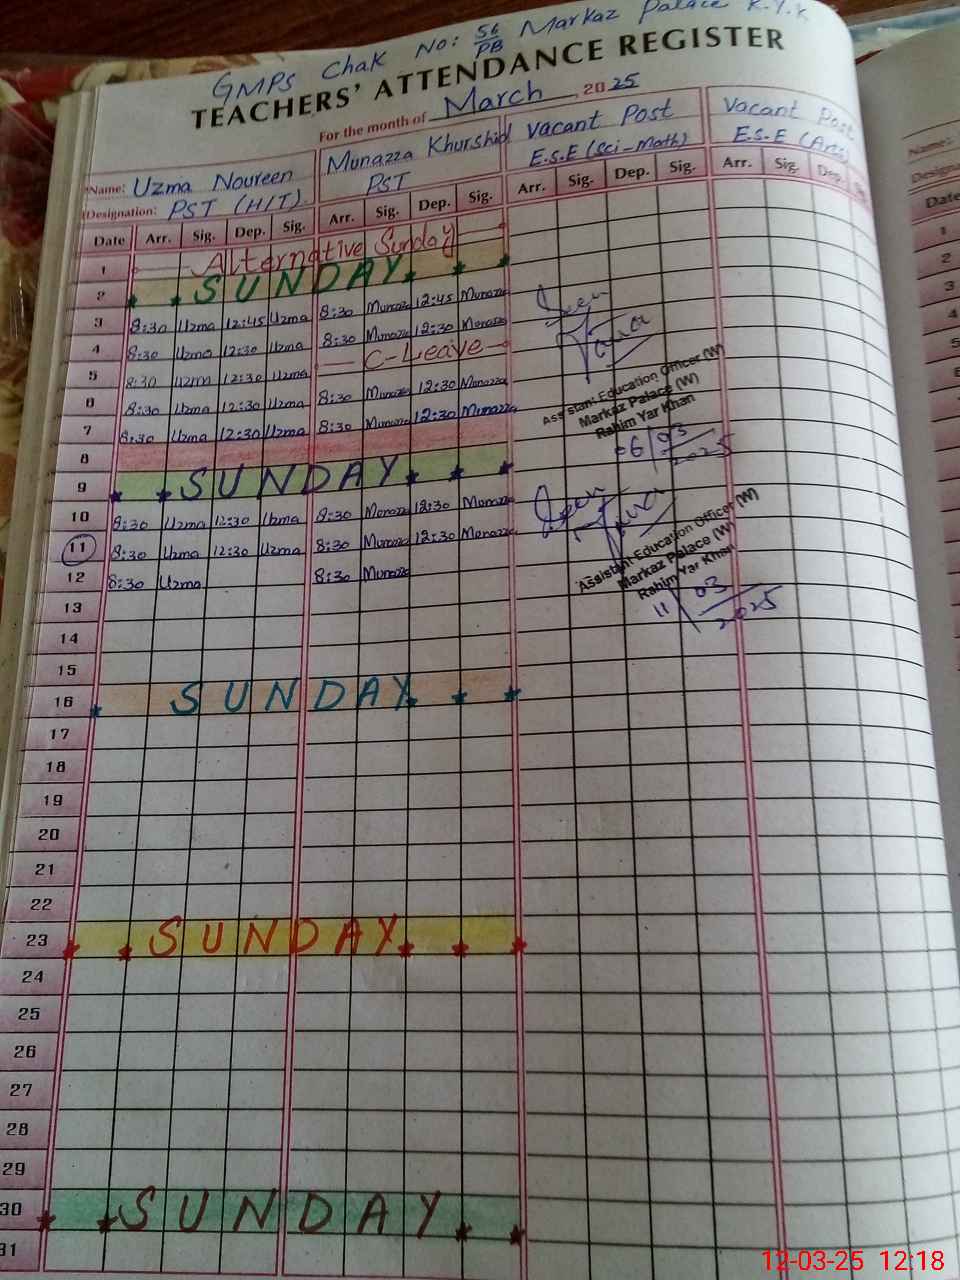 GMPS Chak No: 56/PB Markaz Palace R.Y.K
TEACHERS' ATTENDANCE REGISTER
For the month of March, 2025
Name: Uzma Noureen Munazza Khurshid Vacant Post Vacant Post
Designation: PST (H/T) PST E.S.E (Sci-Math) E.S.E (Arts)
Date Arr. Sig. Dep. Sig. Arr. Sig. Dep. Sig. Arr. Sig. Dep. Sig. Arr. Sig. Dep.
1 Alternative Sunday
2 SUNDAY
3 8:30 Uzma 12:45 Uzma 8:30 Munazza 12:45 Munazza
4 8:30 Uzma 12:30 Uzma 8:30 Munazza 12:30 Munazza
5 8:30 Uzma 12:30 Uzma C-Leave
6 8:30 Uzma 12:30 Uzma 8:30 Munazza 12:30 Munazza
7 8:30 Uzma 12:30 Uzma 8:30 Munazza 12:30 Munazza
8
9 SUNDAY
10 8:30 Uzma 12:30 Uzma 8:30 Munazza 12:30 Munazza
11 8:30 Uzma 12:30 Uzma 8:30 Munazza 12:30 Munazza
12 8:30 Uzma 8:30 Munazza
13
14
15
16 SUNDAY
17
18
19
20
21
22
23 SUNDAY
24
25
26
27
28
29
30 SUNDAY
31
Seen
Assistant Education Officer (W)
Markaz Palace (W)
Rahim Yar Khan
06/03/2025
Seen
Assistant Education Officer (W)
Markaz Palace (W)
Rahim Yar Khan
11/03/2025
Name:
Designa
Date
1
2
3
4
5
12-03-25 12:18